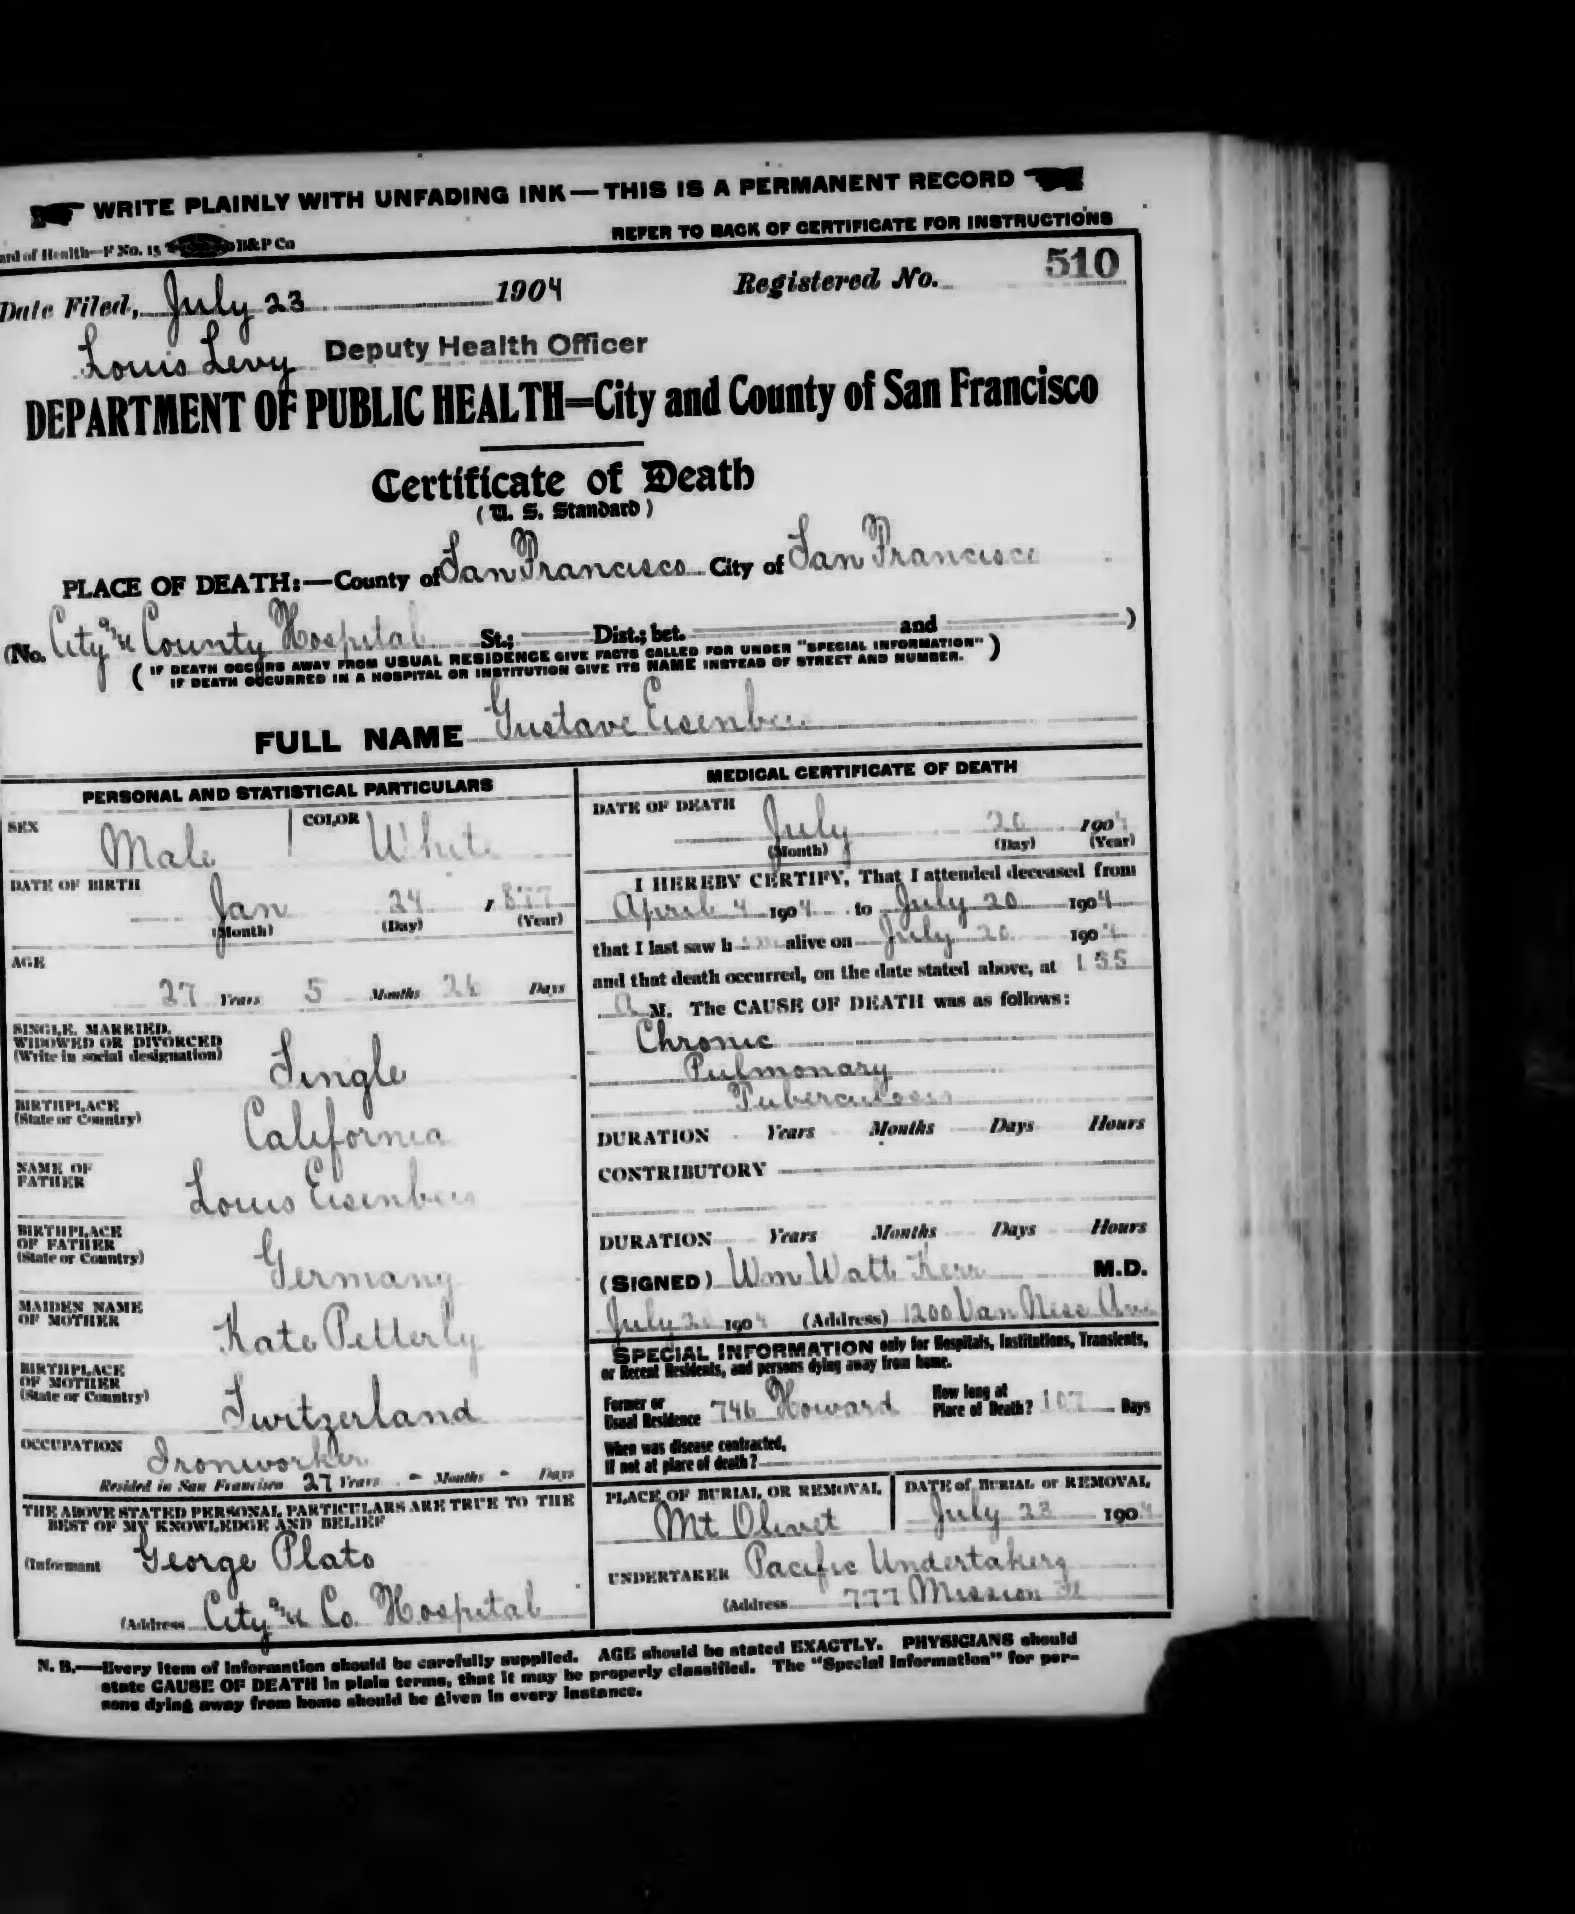 WRITE PLAINLY WITH UNFADING INK—THIS IS A PERMANENT RECORD
ard of Health—F No. 15 B&P Co
REFER TO BACK OF CERTIFICATE FOR INSTRUCTIONS
Date Filed, July 23 1904
Registered No. 510
Louis Levy Deputy Health Officer
DEPARTMENT OF PUBLIC HEALTH—City and County of San Francisco
Certificate of Death
(U. S. Standard)
PLACE OF DEATH:—County of San Francisco City of San Francisco
(No. City and County Hospital St.; Dist.; bet. and )
( IF DEATH OCCURS AWAY FROM USUAL RESIDENCE GIVE FACTS CALLED FOR UNDER "SPECIAL INFORMATION" )
IF DEATH OCCURRED IN A HOSPITAL OR INSTITUTION GIVE ITS NAME INSTEAD OF STREET AND NUMBER.
FULL NAME Gustave
PERSONAL AND STATISTICAL PARTICULARS
SEX Male COLOR White
DATE OF BIRTH
Jan 24 1877
(Month) (Day) (Year)
AGE
27 Years 5 Months 26 Days
SINGLE, MARRIED,
WIDOWED OR DIVORCED
(Write in social designation)
Single
BIRTHPLACE
(State or Country)
California
NAME OF
FATHER
Louis
BIRTHPLACE
OF FATHER
(State or Country)
Germany
MAIDEN NAME
OF MOTHER
Kate Petterly
BIRTHPLACE
OF MOTHER
(State or Country)
Switzerland
OCCUPATION
Ironworker
Resided in San Francisco 27 Years - Months - Days
THE ABOVE STATED PERSONAL PARTICULARS ARE TRUE TO THE
BEST OF MY KNOWLEDGE AND BELIEF
(Informant George Plato
(Address City and Co. Hospital
MEDICAL CERTIFICATE OF DEATH
DATE OF DEATH
July 20 1904
(Month) (Day) (Year)
I HEREBY CERTIFY, That I attended deceased from
April 4 1904 to July 20 1904
that I last saw him alive on July 20 1904
and that death occurred, on the date stated above, at 1 55
A M. The CAUSE OF DEATH was as follows:
Chronic
Pulmonary
Tuberculosis
DURATION Years Months Days Hours
CONTRIBUTORY
DURATION Years Months Days Hours
(SIGNED) Wm Watt Kerr M.D.
July 20 1904 (Address) 1200 Van Ness Ave
SPECIAL INFORMATION only for Hospitals, Institutions, Transients,
or Recent Residents, and persons dying away from home.
Former or
Usual Residence 746 Howard
How long at
Place of Death? 107 Days
When was disease contracted,
If not at place of death?
PLACE OF BURIAL OR REMOVAL
Mt Olivet
DATE of BURIAL or REMOVAL
July 23 1904
UNDERTAKER Pacific Undertakers
(Address 777 Mission St
N. B.—Every item of information should be carefully supplied. AGE should be stated EXACTLY. PHYSICIANS should
state CAUSE OF DEATH in plain terms, that it may be properly classified. The "Special Information" for per-
sons dying away from home should be given in every instance.